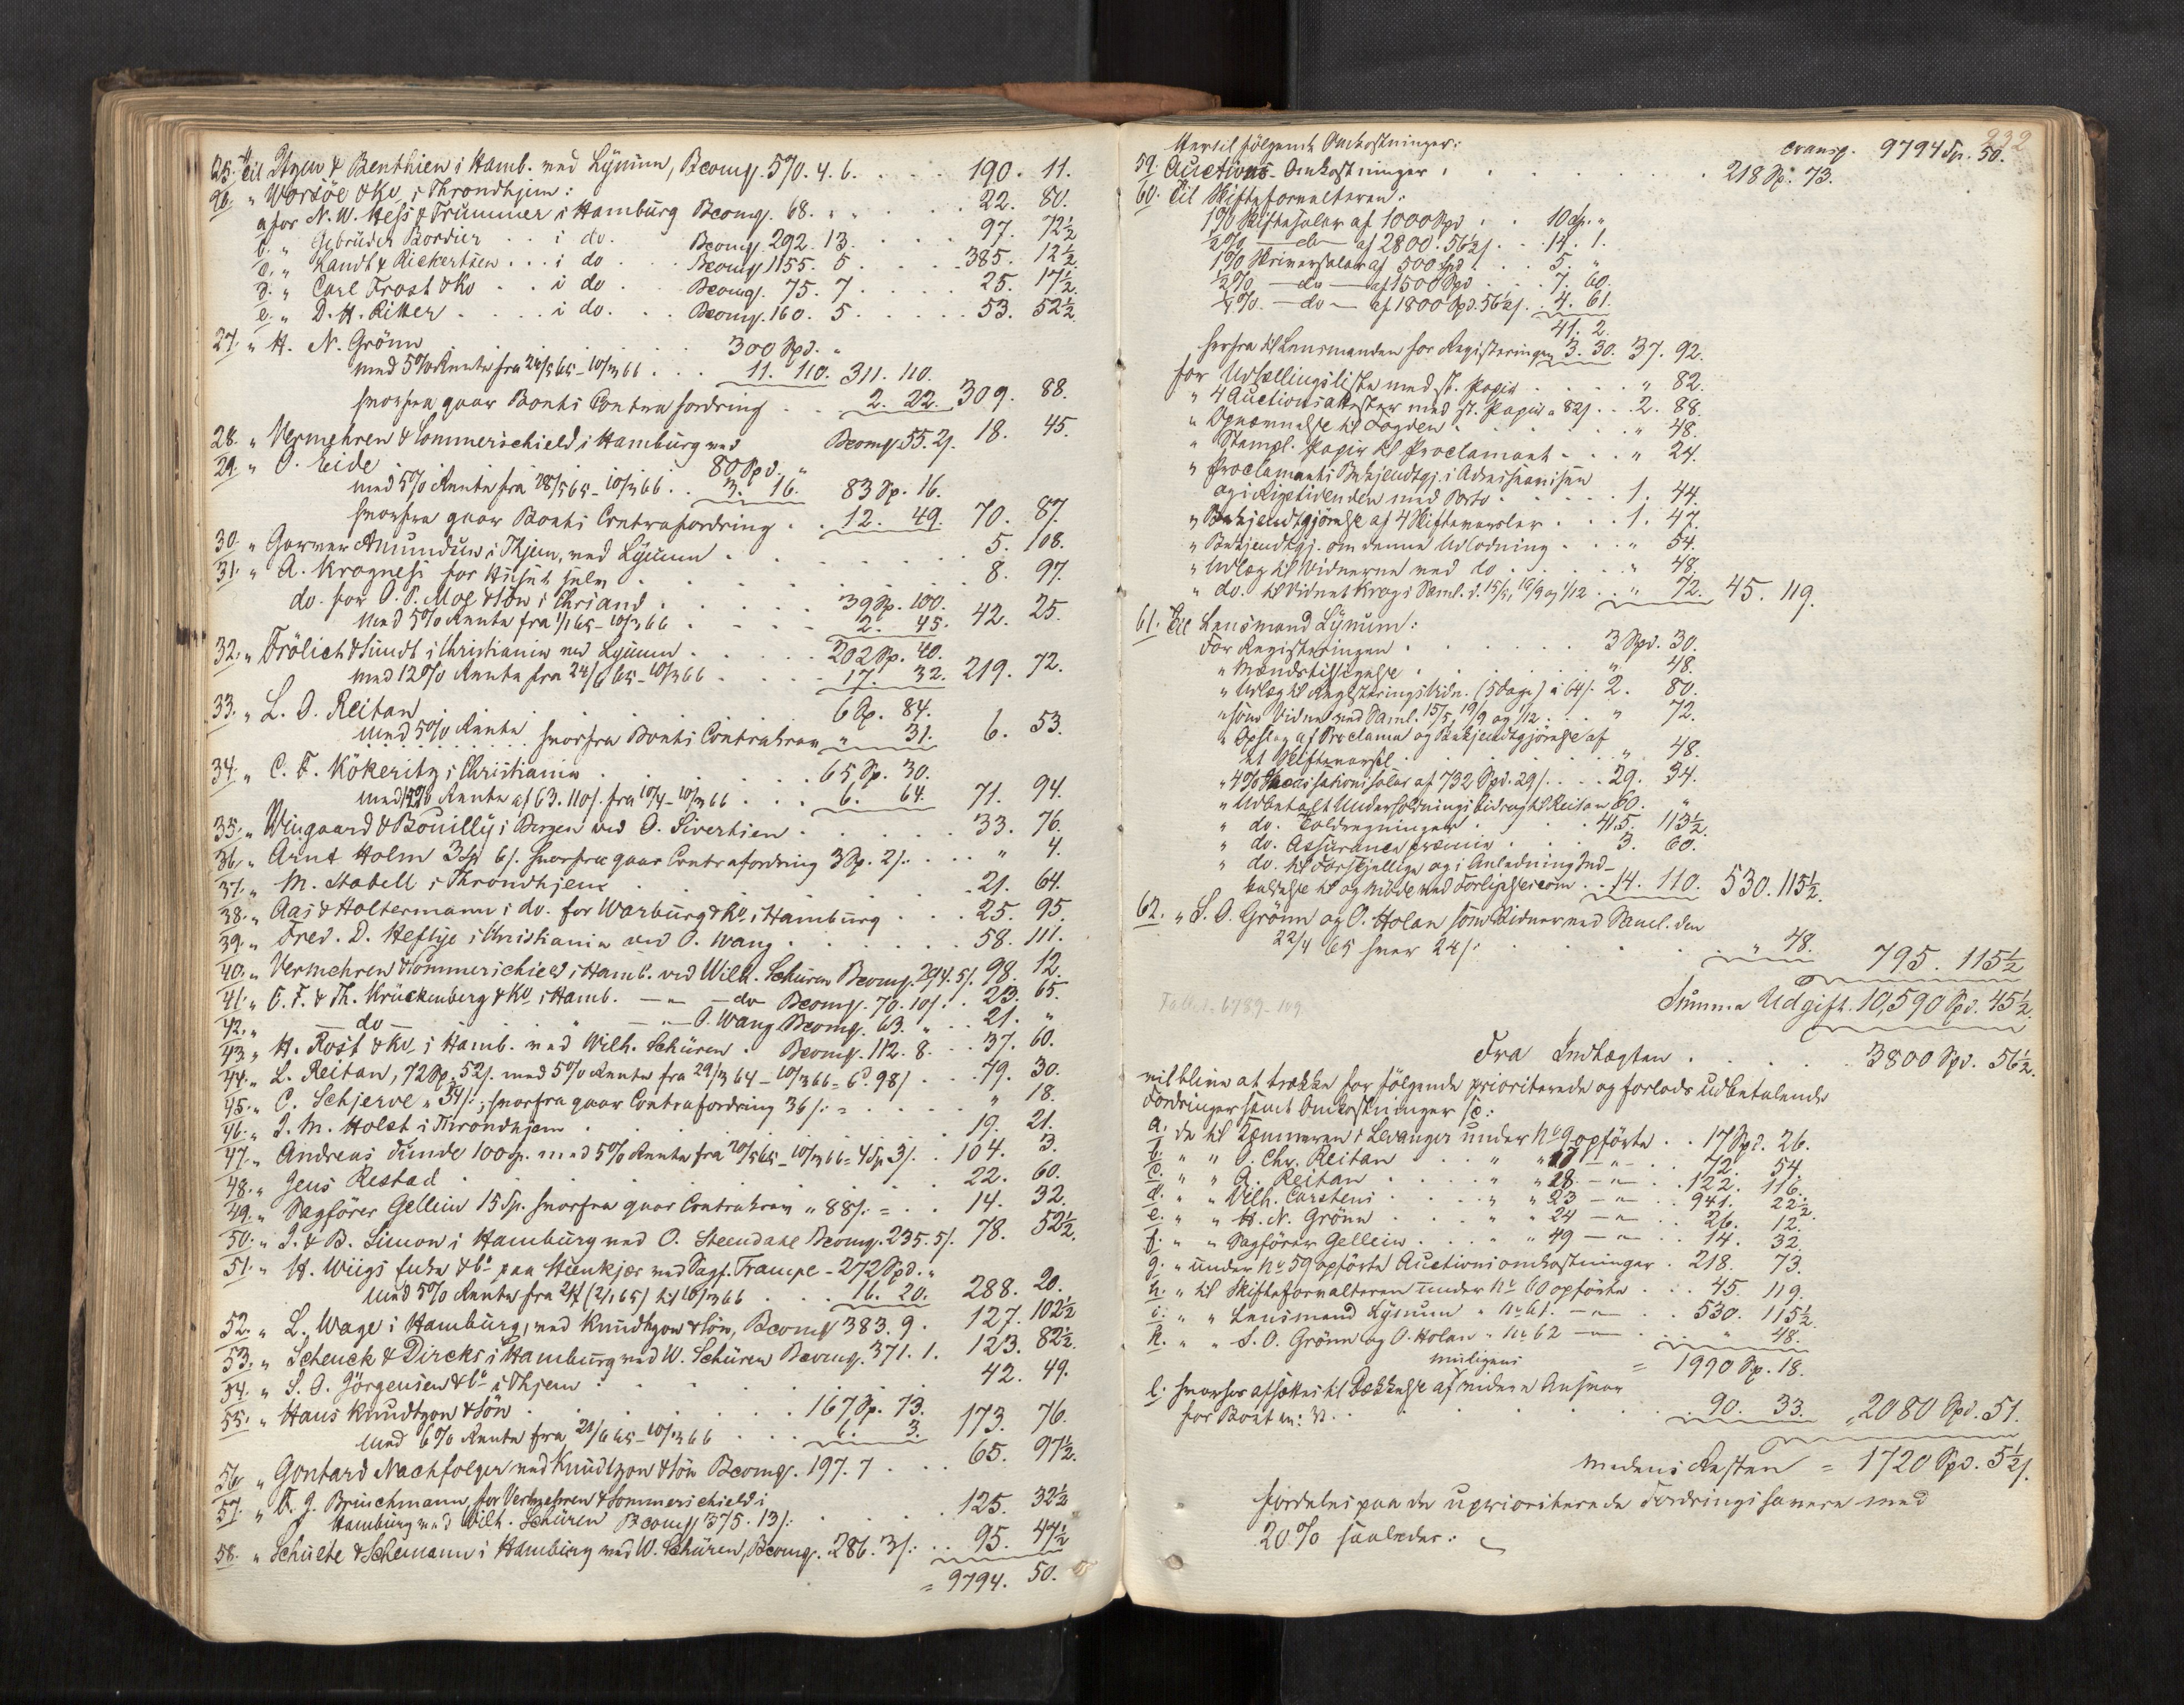 25. Til Stgen & Benthien i Hamb. ved Lÿnum, Bcomg. 570. 4. 6. . . . 190. 11.
26. " Worsöe & Ko, i Throndhjem:
a for N. W. Hess & Trummer i Hamburg Bcomg. 68. . . . 22. 80.
b. " Gebrüder Bordier . . i do. Bcomg. 292. 13. . . . 97. 72½
c. " Kandt & Rickertsen . . . i do . Bcomg 1155. 5 . . . 385. 12½.
d. " Carl Frost & Ko . . i do . Bcomg. 75. 7 . . . 25. 17½.
e. " D. H. Ritter . . . . i do. . . Bcomg. 160. 5 . . . 53. 52½.
27. " H. N. Grönn . . . 300 Spd. "
med 5% Rente fra 24/5 65 - 10/3 66 . . . 11. 110. 311. 110.
hvorfra gaar Boets Contrafordring . . 2. 22. 309. 88.
28. " Vermehren & Sommerschield i Hamburg ved Bcomg 55. 2/. 18. 45.
29. " O. Eide 80 Spd. "
med 5% Rente fra 28/5 65 - 10/3 66 . . 3. 16. 83 Sp. 16.
hvorfra gaar Boets Contrafordring . . 12. 49. 70. 87.
30. " Garver Amundsen i Thjem, ved Lÿnum . . . 5. 108.
31. " A. Kragness for Huset selv . . . 8. 97.
do. for O. P. Moe & Sön i Chrsand . . . 39 Sp. 100.
med 5% Rente fra 1/1 65 - 10/3 66 . . . 2. 45. 42. 25.
32. " Frölich & Sundt i Christiania ved Lÿnum . . . 202 Sp. 40.
med 12% Rente fra 24/6 65 - 10/3 66 . . . 17. 32. 219. 72.
33. " L. O. Reitan 6 Sp. 84.
med 5% Rente hvorfra Boets Contrakrav " 31. 6. 53.
34. " C. F. Kökeritz i Christiania . . . 65 Sp. 30.
med 12% Rente af 63. 110/. fra 10/4 - 10/3 66 . . . 6. 64. 71. 94.
35. " Wingaard & Bouilly i Bergen ved O. Sivertsen . . . 33. 76.
36. " Arnt Holm 3 Sp 6/. hvorfra gaar Contrafordring 3 Sp. 2/. . . . " 4.
37. " M. Stabell i Throndhjem . . . 21. 64.
38. " Aas & Holtermann i do. for Warburg & Ko. i Hamburg . . . 25. 95.
39. " Fred. D. Heftye i Christiania ved O. Wang . . . 58. 111.
40. " Vermehren & Sommerschield i Hamb. ved Wilh. Schüren Bcomg. 294. 5/. 98. 12.
41. " C. F. & Th. Krückenberg & Ko i Hamb. — " — do Bcomg. 70. 10/. . 23. 65.
42. " — do — " — " — O. Wang Bcomg. 63. " . . 21. "
43. " H. Rost & Ko i Hamb. ved Wilh. Schüren . Bcomg. 112. 8. . . 37. 60.
44. " L. Reitan, 72 Sp. 52/. med 5% Rente fra 29/3 64 - 10/3 66 = 6. 98/. . . 79. 30.
45. " C. Schjerve " 54/: hvorfra gaar Contrafordring 36/: = . . . " 18.
46. " J. M. Holst i Throndhjem . . . 19. 21.
47. " Andreas Sunde 100 Sp. med 5% Rente fra 20/5 65 - 10/3 66 = 4 Sp 3/. . 104. 3.
48. " Jens Restad . . . 22. 60.
49. " Sagförer Gellein 15 Sp. hvorfra gaar Contrakrav " 88/: = . . 14. 32.
50. " J. & B. Simon i Hamburg ved O. Steendahl Bcomg. 235. 5/. 78. 52½.
51. " H. Wiigs Enke & Co paa Stenkjær ved Sagf. Trampe - 272 Spd. "
med 5% Rente fra (2/1 65) til 10/3 66 . . . 16. 20. 288. 20.
52. " L. Wage i Hamburg, ved Knudtzon & Sön, Bcomg 383. 9. 127. 102½
53. " Schenck & Dircks i Hamburg ved W. Schüren Bcomg. 371. 1. 123. 82½.
54. " S. O. Jörgensen & Co i Thjem . . . 42. 49.
55. " Hans Knudtzon & Sön . . . 167 Sp. 73.
med 6% Rente fra 24/6 65 - 10/3 66 . . . 6. 3. 173. 76.
56. " Gontard Nachfolger ved Knudtzon & Sön Bcomg. 197. 7 . . . 65. 97½.
57. " F. J. Brinchmann, for Vermehren & Sommerschield i
Hamburg ved Wilh. Schüren Bcomg 375. 13/: . . . 125. 32½
58. " Schulte & Schemann i Hamburg ved W. Schüren, Bcomg. 286. 3/: . . 95. 47½
= 9794. 50.
232
Hertil fölgende Omkostninger: transp. 9794 Sp. 50.
59. Auctions-Omkostninger . . . 218 Sp. 73.
60. Til Skifteforvalteren:
1% Skiftesalær af 1000 Spd . . 10 Sp. "
½% — do — af 2800. 56½/. . . 14. 1.
1% Skriversalær af 500 Spd . . . 5. "
½% — do — af 1500 Spd . . . 7. 60.
¼% — do — af 1800 Spd. 56½/. . 4. 61.
41. 2.
herfra til Lensmanden for Registeringen 3. 30. 37. 92.
for Udstællingsliste med st. Papir . . . " 82.
" 4 Auctionsattester med st. Papir a 82/. . . 2. 88.
" Opnævnelse til Fogden . . . " 48.
" Stempl. Papir til Proclamant . . . " 24.
" Proclamants Bekjendtgj. i Adresseavisen
og i Rigstidenden med Porto . . . 1. 44.
" Bekjendtgjörelse af 4 Skiftevarsler . . . 1. 47.
" Bekjendtgj. om denne Udlodning . . . " 54.
" Udlæg til Vidnerne ved do . . . " 48.
" do. til Vidnet Krog i Saml. d. 15/5, 19/9 og 1/12 . . . " 72. 45. 119.
61. Til Lensmand Lÿnum:
For Registeringen . . . 3 Spd. 30.
" Mændstilsigelse . . . " 48.
" Udlæg til Registeringsvidn. (5 Dage) à 64/. 2. 80.
" som Vidne ved Saml. 15/5, 19/9 og 1/12 . . . " 72.
" Opslag af Proclama og Bekjendtgjörelse af
et Skiftevarsel . . . " 48.
" 4% Incassationssalær af 732 Spd. 29/. . . . 29. 34.
" Udbetalt Underholdningsbidrag til Reitan 60. "
" do. Toldregninger . . . 415. 113½.
" do. Assurance præmie . . . 3. 60.
" do. til Forskjellige og i Anledning Ind-
kaldelse til og Möde ved Forligelsescom . . 14. 110. 530. 115½.
62. " S. O. Grönn og O. Holan som Vidner ved Saml. den
22/4 65 hver 24/: . . . " 48. 795. 115½
Summa Udgift. 10,590 Spd. 45½.
Fra Indtægten . . . 3800 Spd. 56½.
vil blive at trække for fölgende prioriterede og forlods udbetalende
Fordringer samt Omkostninger sc:
a. de til Kæmneren i Levanger under No 9 opförte . . 17 Spd. 26.
b. " " O. Chr. Reitan . . . " " 17 — " — . . 72. 54.
c. " " A. Reitan . . . " " 18. — " — . . 122. 116.
d. " " Wilh. Carstens . . . " " 23 — " — . . 941. 22½.
e. " " H. N. Grönn . . . " " 24 — " — . . 26. 12.
f. " " Sagförer Gellein . . . " " 49 — " — . . 14. 32.
g. " under No 59 opförte Auctionsomkostninger . 218. 73.
h. " til Skifteforvalteren under No 60 opförte . . . 45. 119.
i. " " Lensmand Lÿnum " No 61. — " — . . 530. 115½.
k. " " S. O. Grönn og O. Holan " No 62 — " — . . . " 48.
= 1990 Sp. 18.
muligens
l. hvorhos afsættes til Dækkelse af videre Ansvar
for Boet m: v. . . . 90. 33. = 2080 Spd. 51.
medens Resten = 1720 Spd. 5½/.
fordeles paa de uprioriterede Fordringshavere med
20% saaledes: